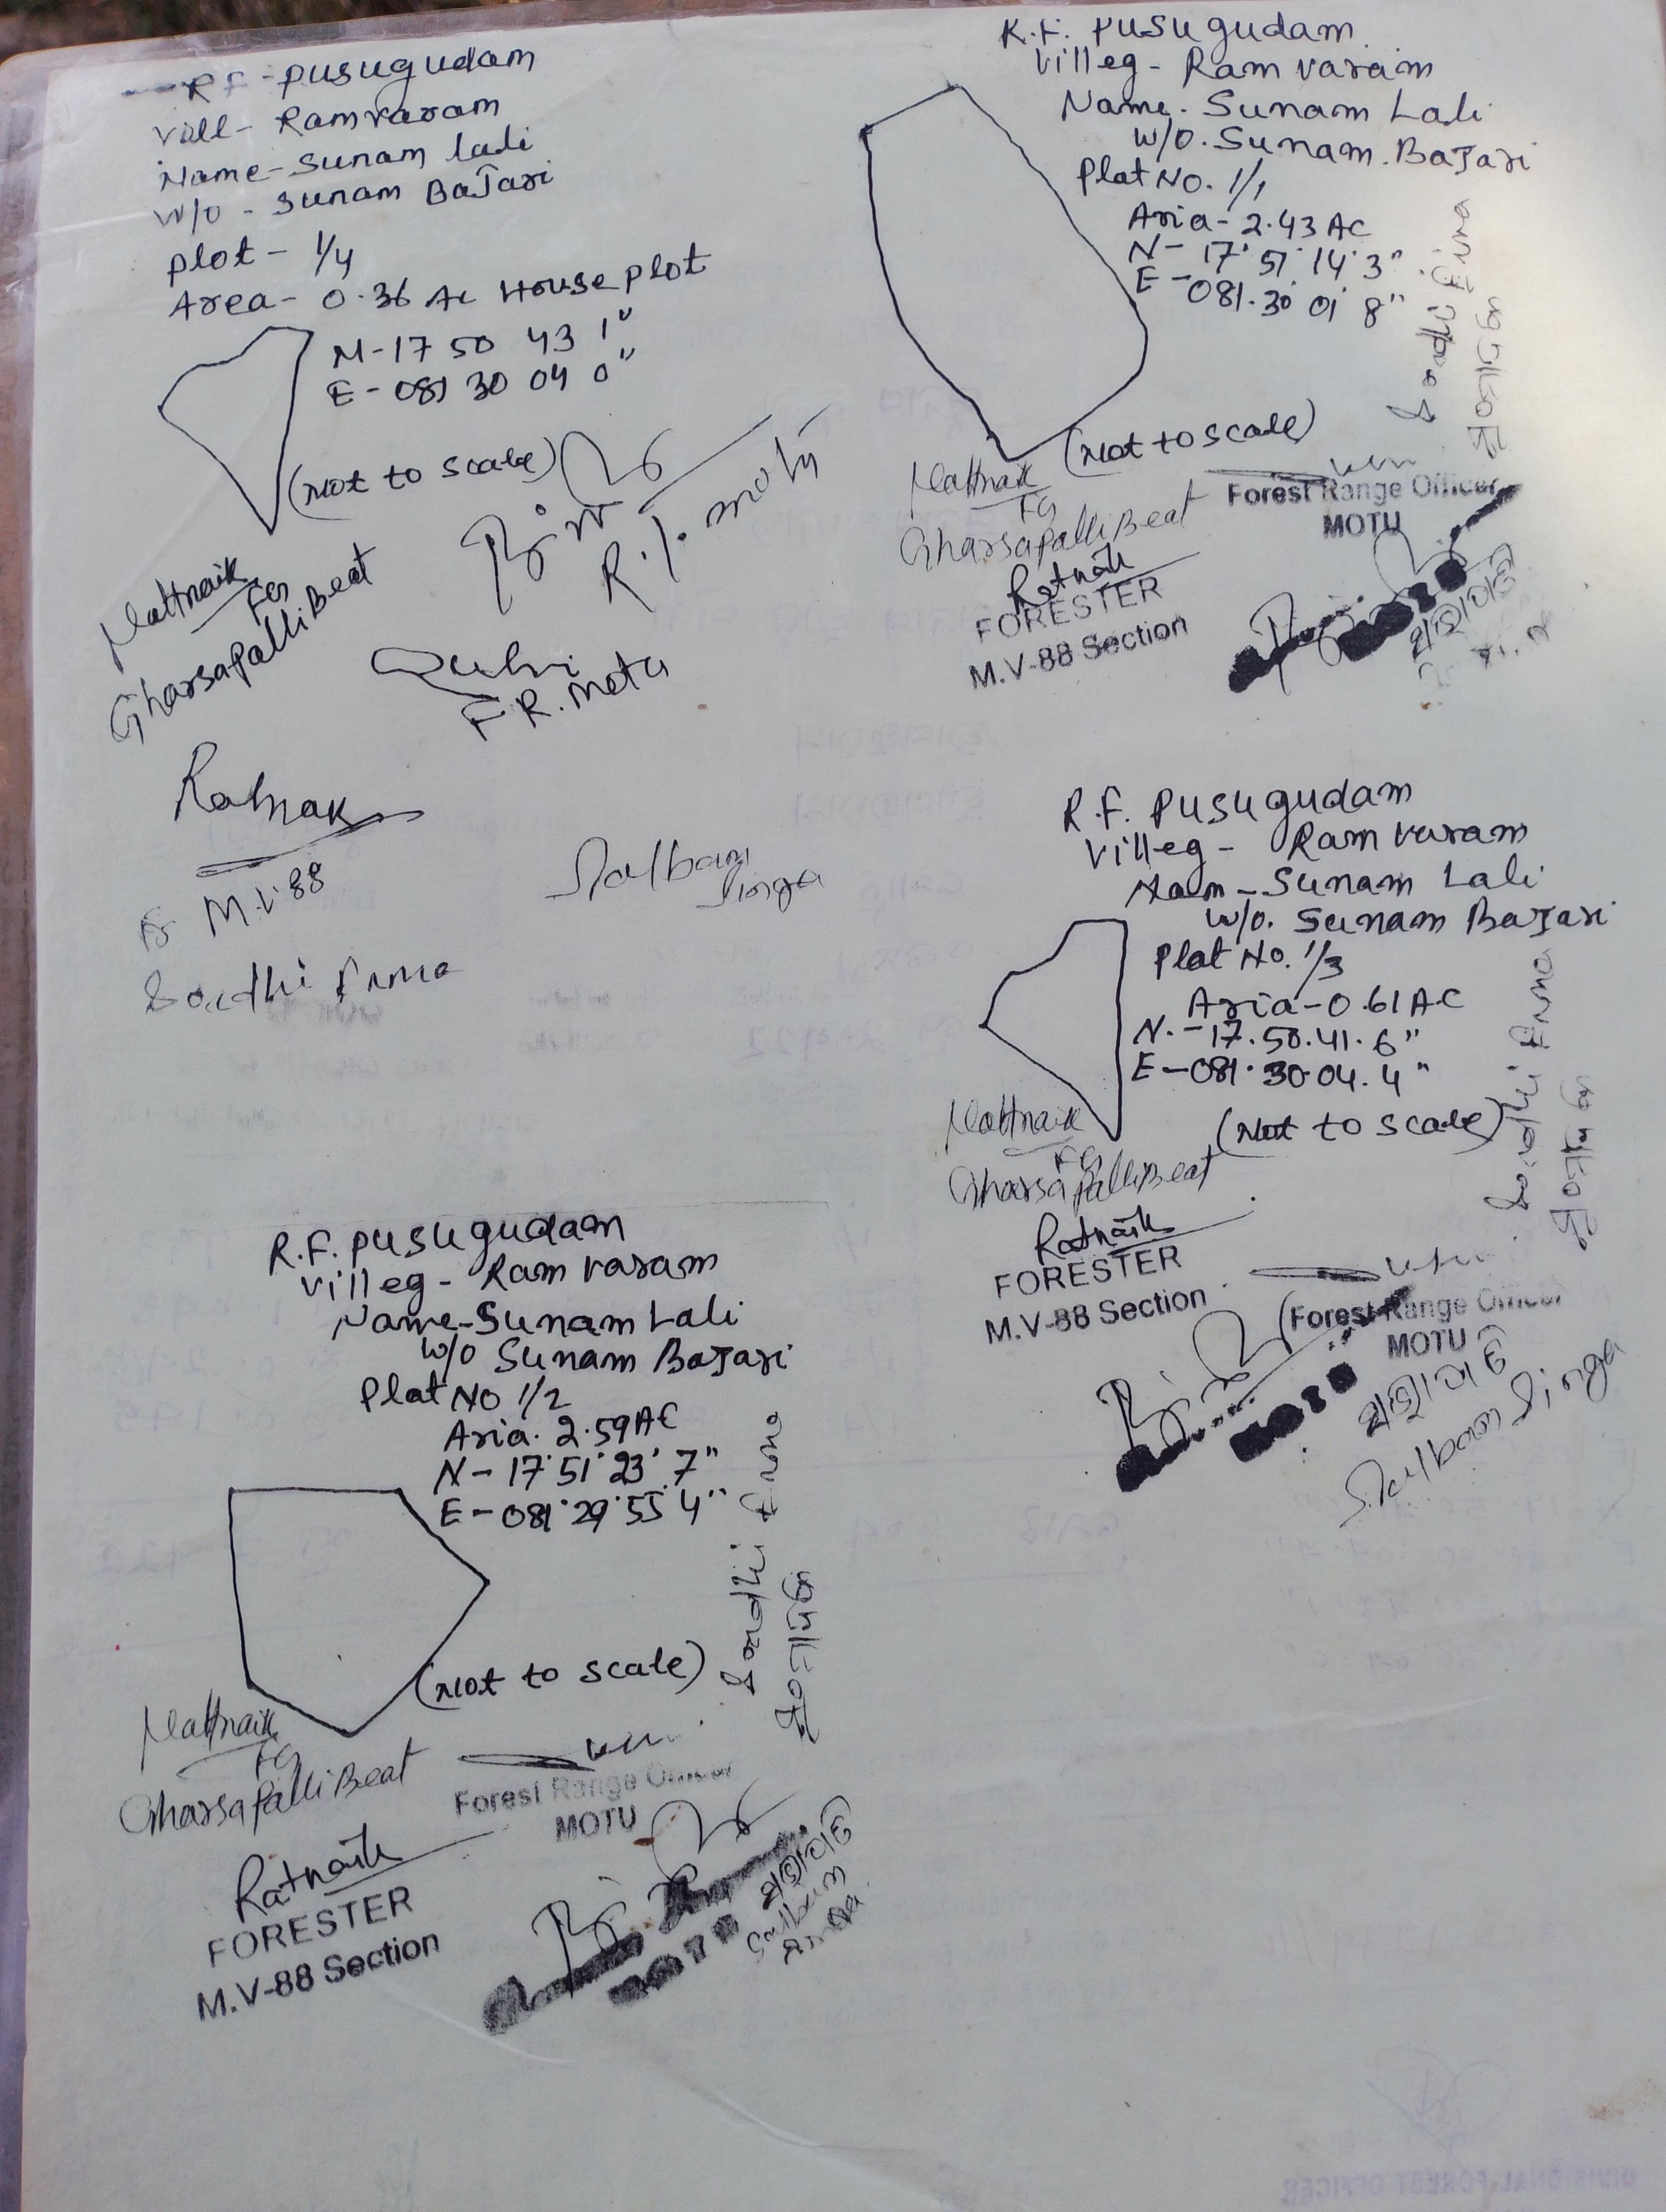 R.F - pusugudam
vill - Ramvaram
Name - Sunam lali
W/o - Sunam BaJari
plot - 1/4
Area - 0.36 Ac House plot
N - 17 50 43 1"
E - 081 30 04 0"
(Not to scale)
R.I. motu
FG
Gharsapalli Beat
F.R. Motu
M.V-88
Sodhi Enna
Salban Singa
R.F. pusugudam
villeg - Ram varam
Name. Sunam Lali
W/o. Sunam. BaJari
Plat NO. 1/1
Aria - 2.43 AC
N - 17° 51' 14' 3"
E - 081. 30' 01' 8"
(Not to scale)
Sodhi Enna
FG
Gharsapalli Beat
Ratnaik
FORESTER
M.V-88 Section
Forest Range Officer
MOTU
R.F. pusugudam
villeg - Ram varam
Nam - Sunam Lali
W/o. Sunam BaJari
Plat No. 1/3
Aria - 0.61 A.C
N. - 17.50.41.6"
E - 081.30.04.4"
(Not to scale)
Sodhi Enna
FG
Gharsapalli Beat
Ratnaik
FORESTER
M.V-88 Section
Forest Range Officer
MOTU
Salban Singa
R.F. pusugudam
villeg - Ram varam
Name - Sunam Lali
W/o Sunam BaJari
Plat NO 1/2
Aria. 2.59 AC
N - 17° 51' 23' 7"
E - 081° 29' 55' 4"
(Not to scale)
Sodhi Enna
FG
Gharsapalli Beat
Ratnaik
FORESTER
M.V-88 Section
Forest Range Officer
MOTU
Salban
Singa